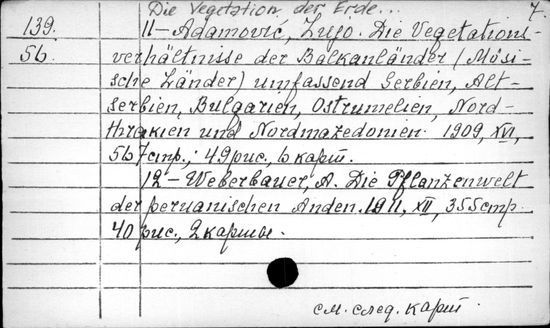 Die Vegetation der Erde... 7.
139. 11 – Adamović, Lujo. Die Vegetations-
56. verhältnisse der Balkanländer (Mösi-
sche Länder) umfassend Serbien, Alt-
serbien, Bulgarien, Ostrumelien, Nord-
thrakien und Nordmazedonien. 1909, XVI,
567 стр.; 49 рис., 6 карт.
12 – Weberbauer, A. Die Pflanzenwelt
der peruanischen Anden. 1911, XII, 355 стр.
40 рис., 2 карты.
см. след. карт.